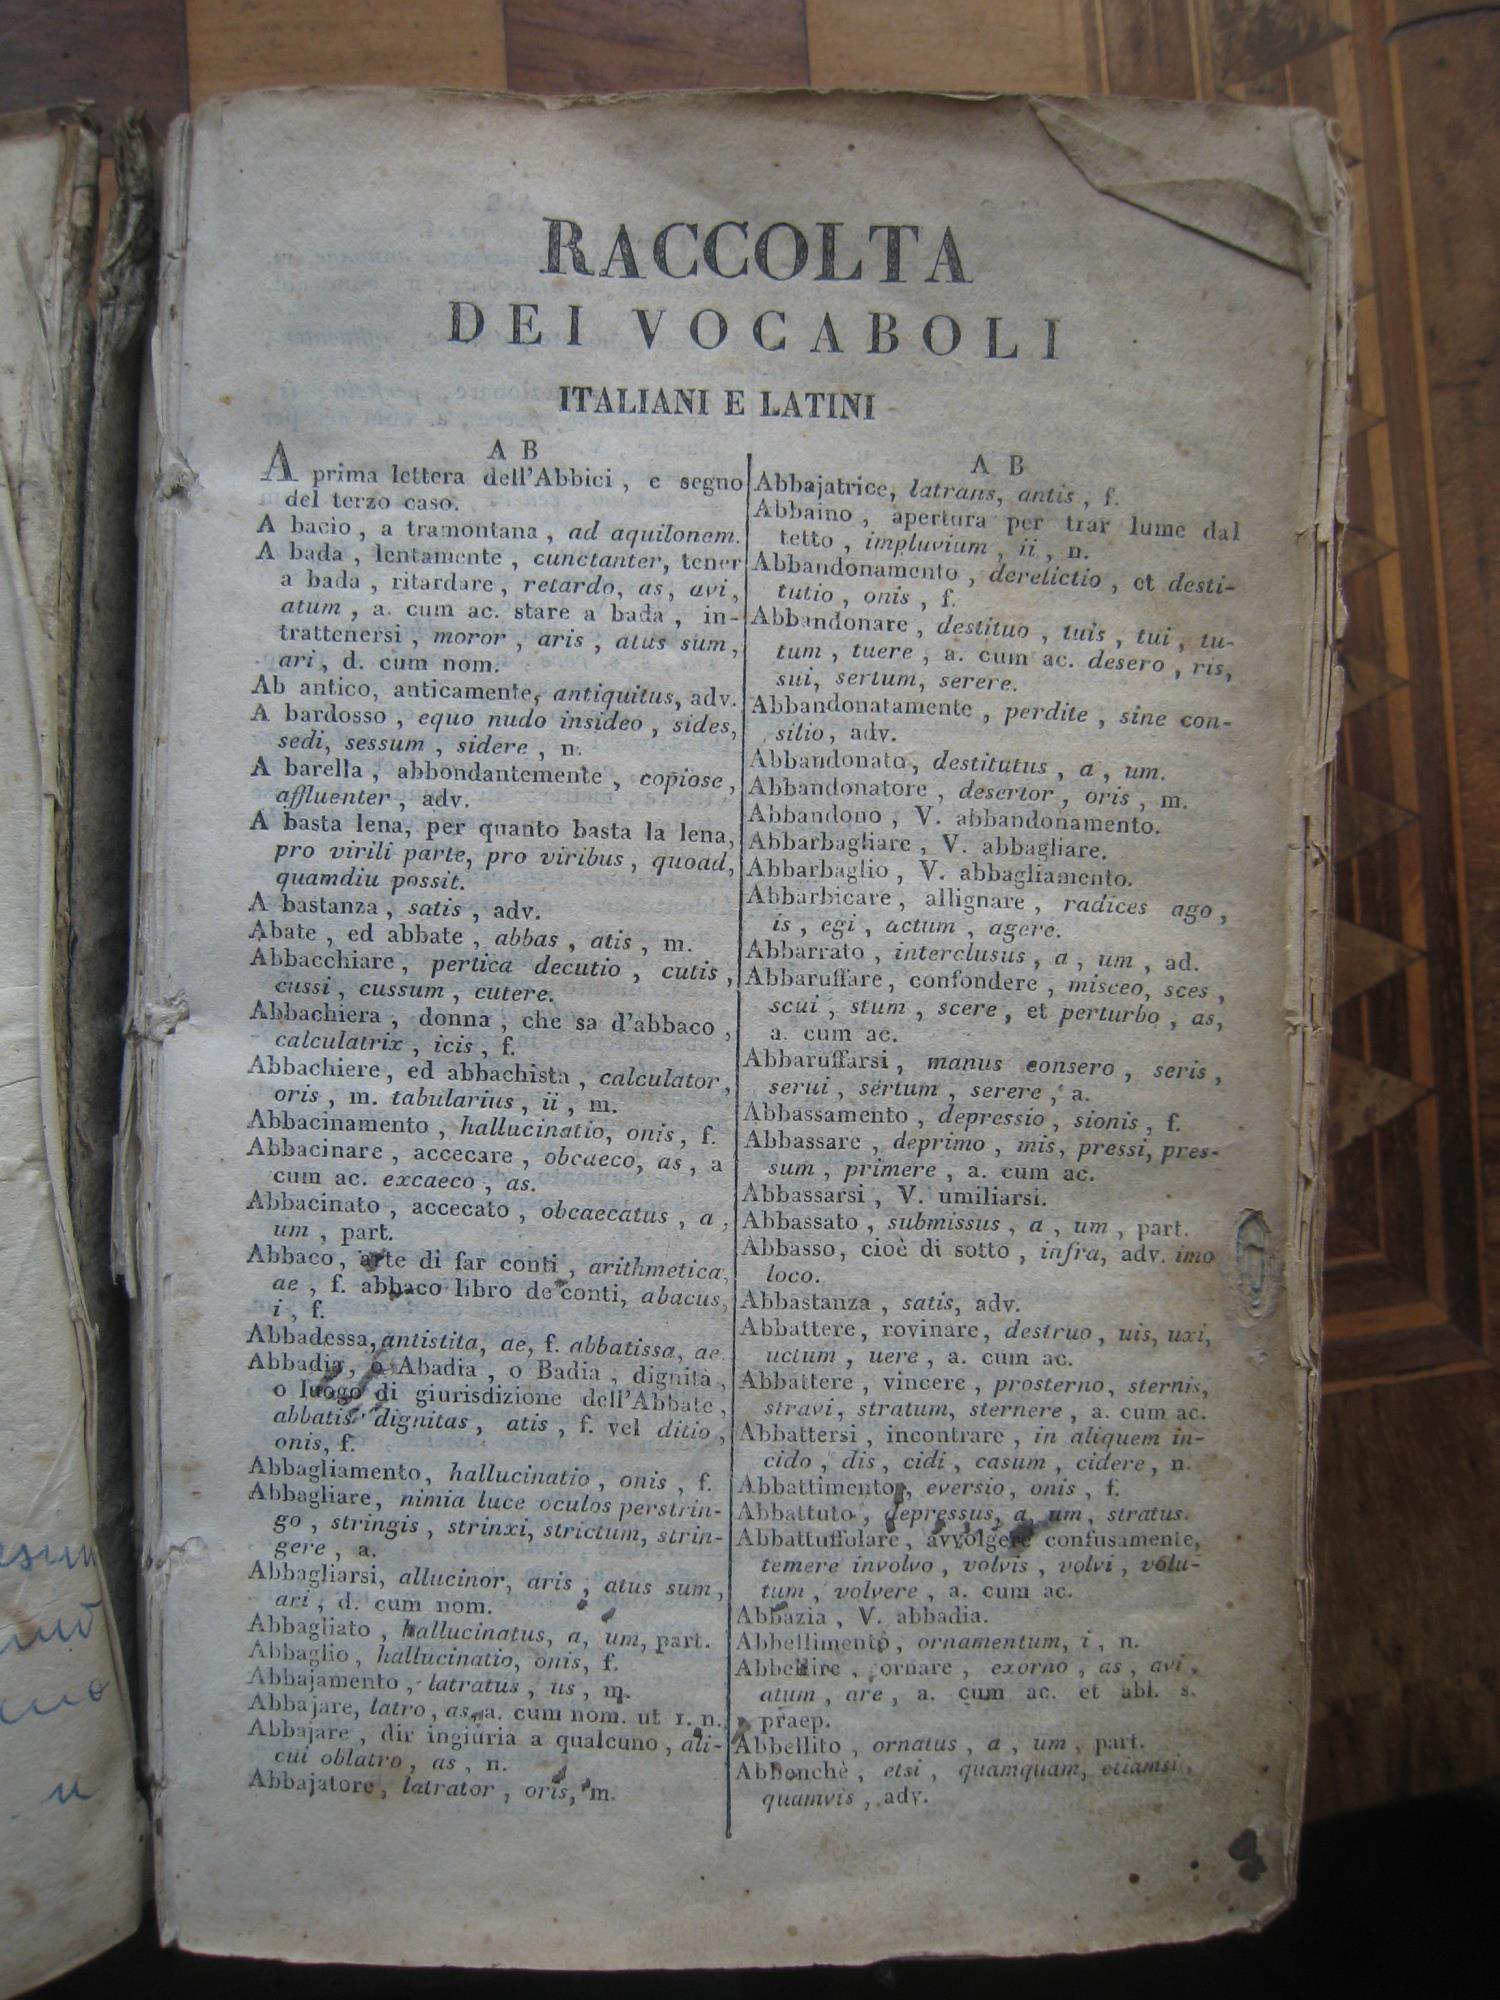 RACCOLTA
DEI VOCABOLI
ITALIANI E LATINI
A B
A prima lettera dell'Abbici, e segno
del terzo caso.
A bacio, a tramontana, ad aquilonem.
A bada, lentamente, cunctanter, tener
a bada, ritardare, retardo, as, avi,
atum, a. cum ac. stare a bada, in-
trattenersi, moror, aris, atus sum,
ari, d. cum nom.
Ab antico, anticamente, antiquitus, adv.
A bardosso, equo nudo insideo, sides,
sedi, sessum, sidere, n.
A barella, abbondantemente, copiose,
affluenter, adv.
A basta lena, per quanto basta la lena,
pro virili parte, pro viribus, quoad,
quamdiu possit.
A bastanza, satis, adv.
Abate, ed abbate, abbas, atis, m.
Abbacchiare, pertica decutio, cutis,
cussi, cussum, cutere.
Abbachiera, donna, che sa d'abbaco,
calculatrix, icis, f.
Abbachiere, ed abbachista, calculator,
oris, m. tabularius, ii, m.
Abbacinamento, hallucinatio, onis, f.
Abbacinare, accecare, obcaeco, as, a
cum ac. excaeco, as.
Abbacinato, accecato, obcaecatus, a,
um, part.
Abbaco, arte di far conti, arithmetica,
ae, f. abbaco libro de'conti, abacus,
i, f.
Abbadessa, antistita, ae, f. abbatissa, ae.
Abbadia, o Abadia, o Badia, dignità,
o luogo di giurisdizione dell'Abbate,
abbatis dignitas, atis, f. vel ditio,
onis, f.
Abbagliamento, hallucinatio, onis, f.
Abbagliare, nimia luce oculos perstrin-
go, stringis, strinxi, strictum, strin-
gere, a.
Abbagliarsi, allucinor, aris, atus sum,
ari, d. cum nom.
Abbagliato, hallucinatus, a, um, part.
Abbaglio, hallucinatio, onis, f.
Abbajamento, latratus, us, m.
Abbajare, latro, as, a. cum nom. ut 1. n.
Abbajare, dir ingiuria a qualcuno, ali-
cui oblatro, as, n.
Abbajatore, latrator, oris, m.
A B
Abbajatrice, latrans, antis, f.
Abbaino, apertura per trar lume dal
tetto, impluvium, ii, n.
Abbandonamento, derelictio, et desti-
tutio, onis, f.
Abbandonare, destituo, tuis, tui, tu-
tum, tuere, a. cum ac. desero, ris,
sui, sertum, serere.
Abbandonatamente, perdite, sine con-
silio, adv.
Abbandonato, destitutus, a, um.
Abbandonatore, desertor, oris, m.
Abbandono, V. abbandonamento.
Abbarbagliare, V. abbagliare.
Abbarbaglio, V. abbagliamento.
Abbarbicare, allignare, radices ago,
is, egi, actum, agere.
Abbarrato, interclusus, a, um, ad.
Abbaruffare, confondere, misceo, sces,
scui, stum, scere, et perturbo, as,
a. cum ac.
Abbaruffarsi, manus consero, seris,
serui, sertum, serere, a.
Abbassamento, depressio, sionis, f.
Abbassare, deprimo, mis, pressi, pres-
sum, primere, a. cum ac.
Abbassarsi, V. umiliarsi.
Abbassato, submissus, a, um, part.
Abbasso, cioè di sotto, infra, adv. imo
loco.
Abbastanza, satis, adv.
Abbattere, rovinare, destruo, uis, uxi,
uctum, uere, a. cum ac.
Abbattere, vincere, prosterno, sternis,
stravi, stratum, sternere, a. cum ac.
Abbattersi, incontrare, in aliquem in-
cido, dis, cidi, casum, cidere, n.
Abbattimento, eversio, onis, f.
Abbattuto, depressus, a, um, stratus.
Abbattuffolare, avvolgere confusamente,
temere involvo, volvis, volvi, volu-
tum, volvere, a. cum ac.
Abbazia, V. abbadia.
Abbellimento, ornamentum, i, n.
Abbellire, ornare, exorno, as, avi,
atum, are, a. cum ac. et abl. s.
praep.
Abbellito, ornatus, a, um, part.
Abbenchè, etsi, quamquam, etiamsi,
quamvis, adv.